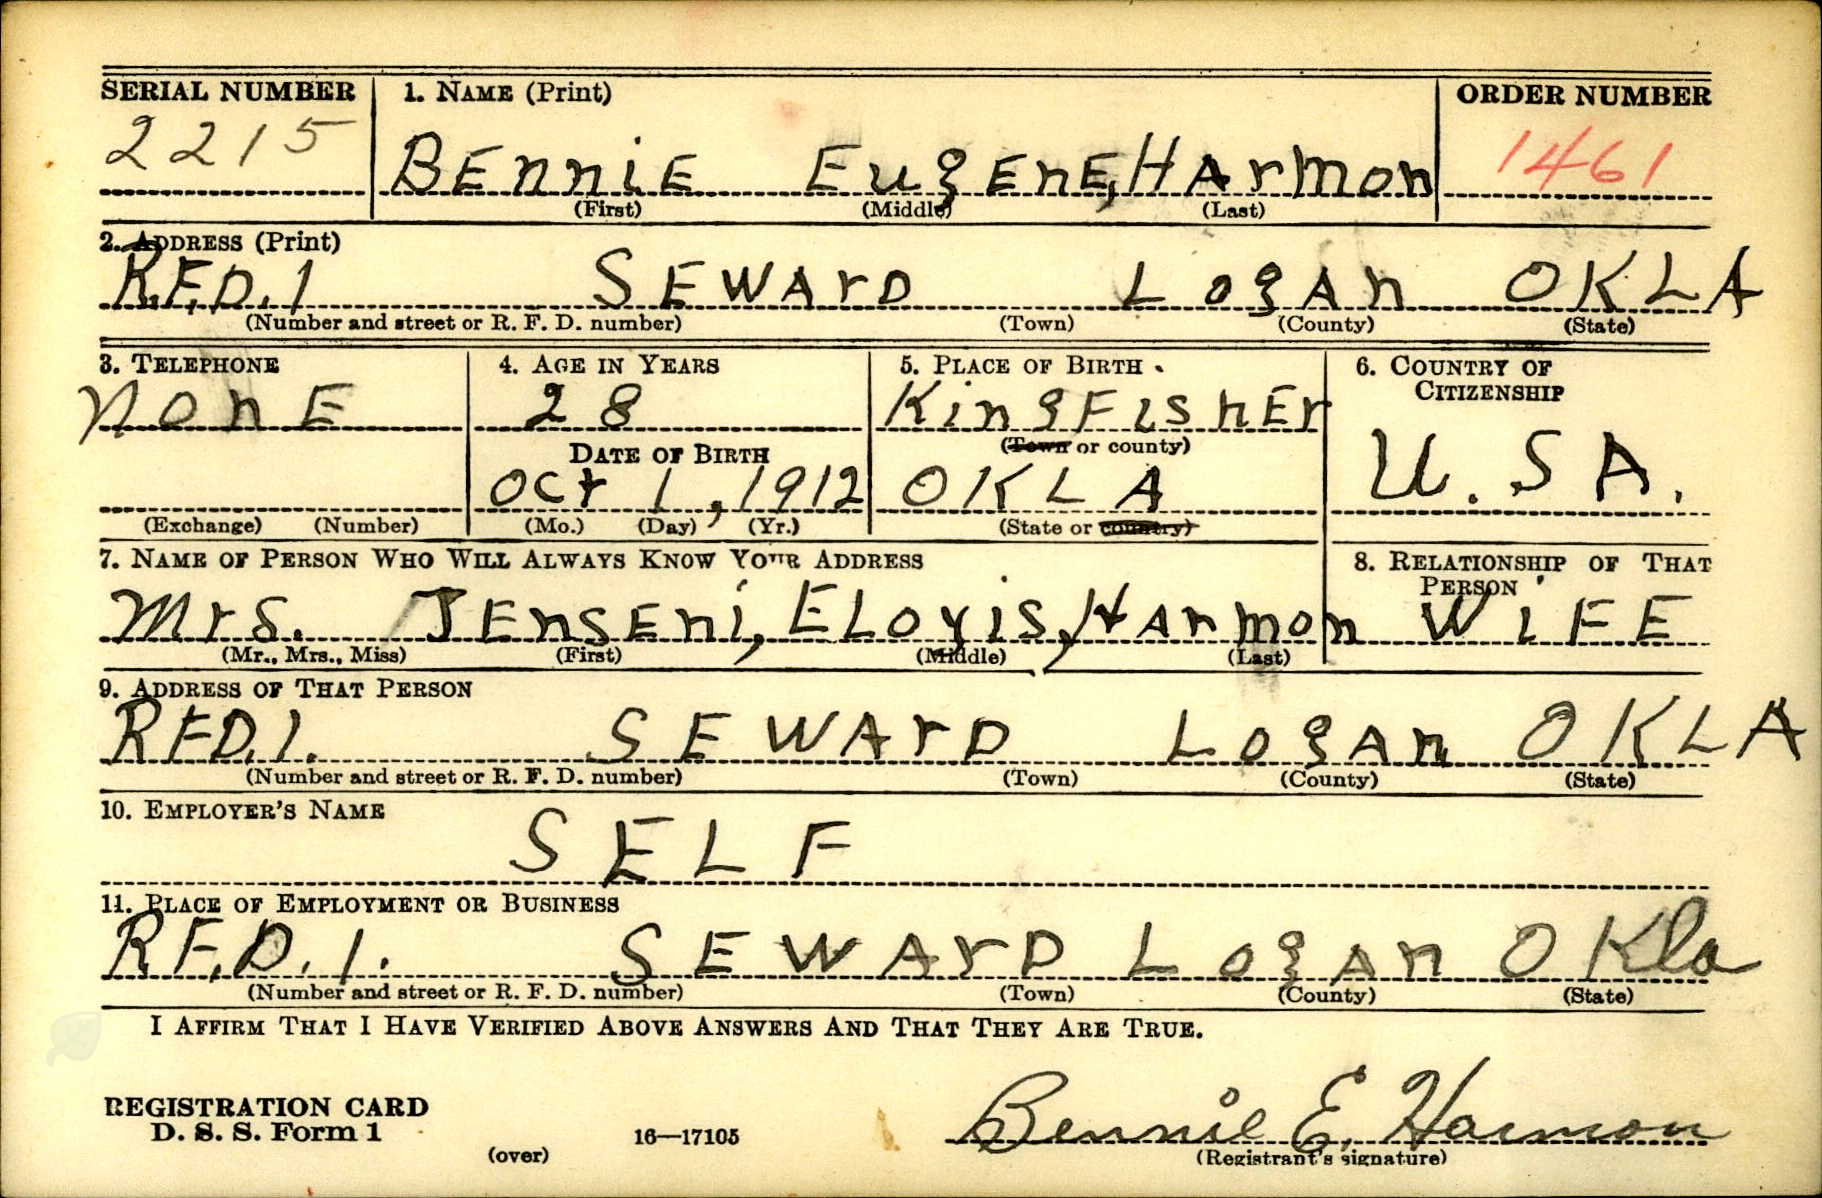 SERIAL NUMBER 1. NAME (Print) ORDER NUMBER
2215 BEnniE EugEnE, HArmon 1461
(First) (Middle) (Last)
2. ADDRESS (Print)
R.F.D. 1 SEWArD LogAn OKLA
(Number and street or R. F. D. number) (Town) (County) (State)
3. TELEPHONE 4. AGE IN YEARS 5. PLACE OF BIRTH 6. COUNTRY OF CITIZENSHIP
nonE 28 KingFishEr
(Town or county)
DATE OF BIRTH U.SA.
Oct 1, 1912 OKLA
(Exchange) (Number) (Mo.) (Day) (Yr.) (State or country)
7. NAME OF PERSON WHO WILL ALWAYS KNOW YOUR ADDRESS 8. RELATIONSHIP OF THAT PERSON
Mrs. JEnsEni, ELoyis, HArmon WiFE
(Mr., Mrs., Miss) (First) (Middle) (Last)
9. ADDRESS OF THAT PERSON
RFD.1. SEWArD LogAn OKLA
(Number and street or R. F. D. number) (Town) (County) (State)
10. EMPLOYER'S NAME
SELF
11. PLACE OF EMPLOYMENT OR BUSINESS
R.F.D. 1. SEWArD LogAn OKla
(Number and street or R. F. D. number) (Town) (County) (State)
I AFFIRM THAT I HAVE VERIFIED ABOVE ANSWERS AND THAT THEY ARE TRUE.
REGISTRATION CARD
D. S. S. Form 1 (over) 16—17105 Bennie E. Harmon
(Registrant's signature)